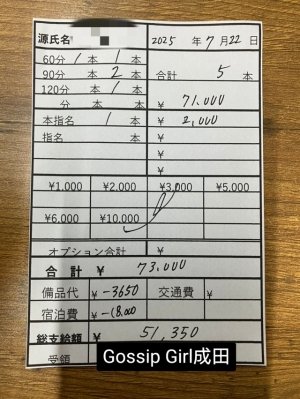 源氏名 2025 年 7 月 22 日
60分 1 本 1 本
90分 2 本 合計 5 本
120分 1 本 ¥ 71,000
分 本 ¥ 2,000
本指名 1 本 ¥
指名 本 ¥
¥
¥1,000 ¥2,000 ¥3,000 ¥5,000
¥6,000 ¥10,000
オプション合計 ¥
合計 ¥ 73,000
備品代 ¥ -3650 交通費 ¥
宿泊費 ¥ -18,000
総支給額 51,350
受領
Gossip Girl成田